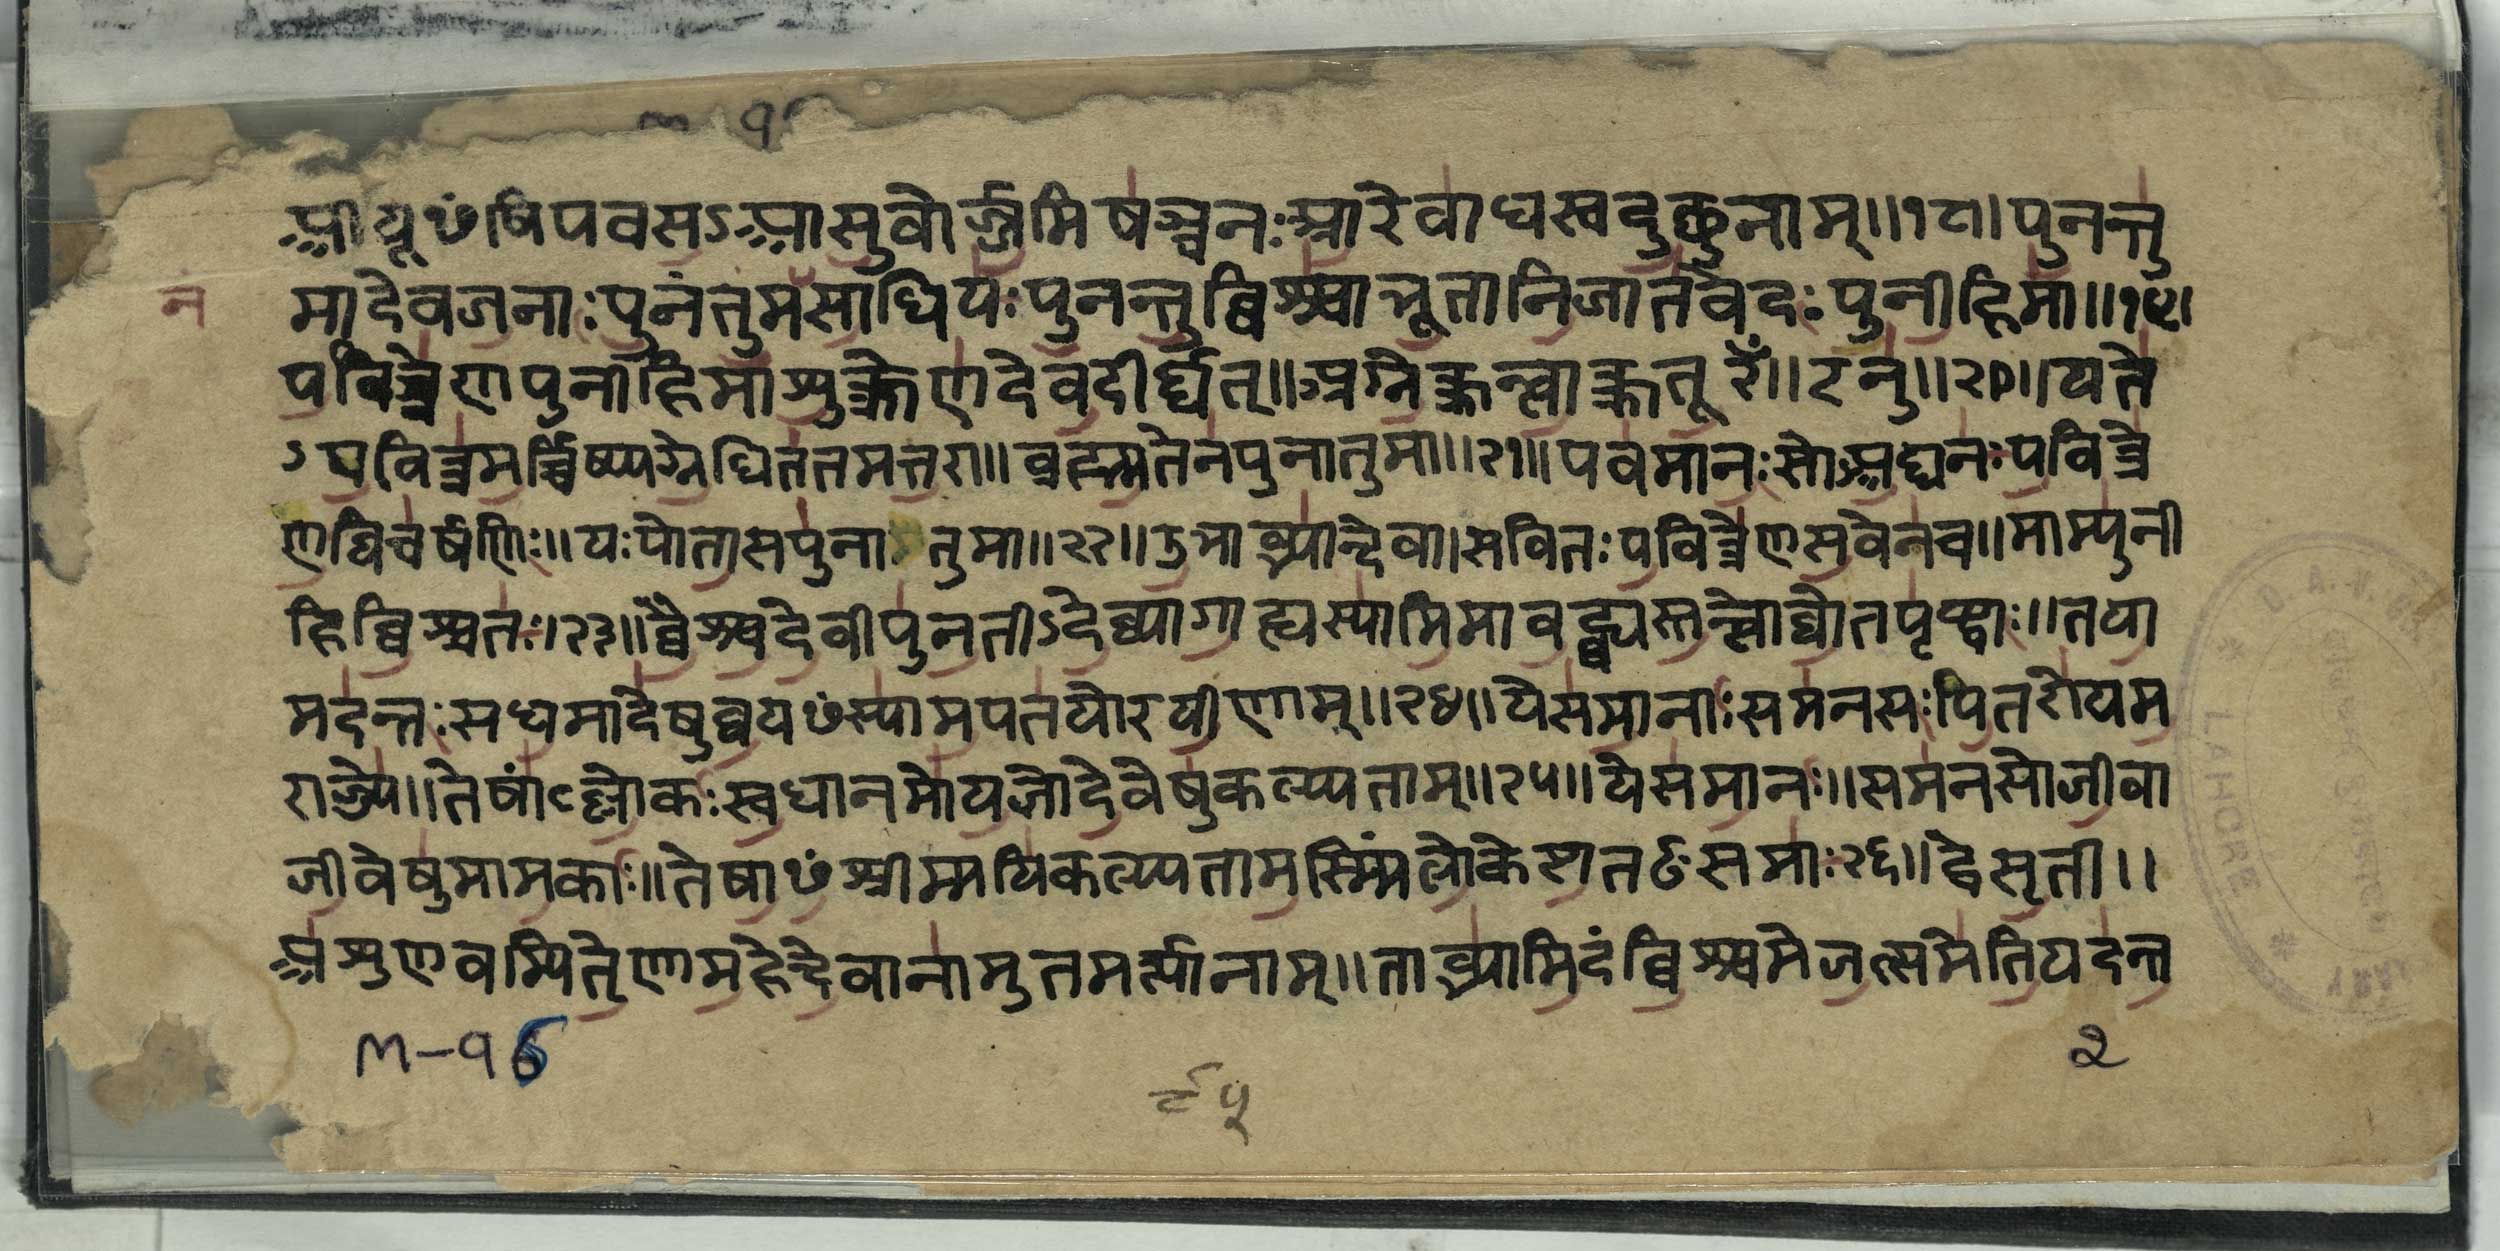 अायूᳪषिपवसऽअासुवोर्ज्जमिषञ्चनःआरेबाधस्वदुछुनाम्॥१८॥पुनन्तु
न मादेवजनाः पुनंतुमँसाधियः पुनन्तुब्बिश्श्वाभूतानिजातवेदः पुनीहिमा॥१९।
पवित्रेणपुनीहिमाशुक्रेणदेवदीर्द्यत्॥अग्नेक्क्रत्वाक्क्रतूरँ॥ऽनु॥२०॥यते
ऽपवित्रमर्च्चिष्ष्यग्नेधिततमत्तरा॥ब्रह्मतेनपुनातुमा॥२१॥पवमानःसोऽअद्यनःपवित्रे
णविचर्षणिः॥यःपोतासपुना तुमा॥२२॥उभाब्भ्यान्देवा।सवितःपवित्रेणसवेनच॥माम्पुनी
हिब्बिश्श्वतः।२३॥ब्बैश्श्वदेवीपुनतीऽदेब्ब्यागाह्यस्यामिमाबह्व्यस्तन्न्वोब्बीतपृष्ट्ठाः॥तया
मदन्तःसधमादेषुब्बयᳪस्यामपतयोरयीणाम्॥२४॥येसमानाःसमनसःपितरोयम
राज्ज्ये॥तेषांल्लोकःस्वधानमोयज्ञोदेवेषुकल्प्पताम्॥२५॥येसमानः॥समनसोजीवा
जीवेषुमामकाः॥तेषाᳪश्रीर्म्मयिकल्प्पतामस्मिंमलोकेशतᳪसमाः२६॥द्वेसृती॥
अशृणवम्पितॄणामहेन्देवानामुतमर्त्त्यानाम्॥ताब्भ्यामिदंब्बिश्श्वमेजत्समेतियदन्त
M-96
२
९५
D. A. V. C
LAHORE